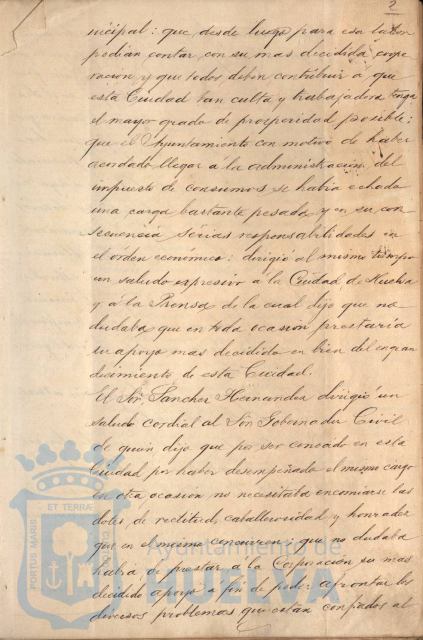 2
nicipal: que, desde luego para esa labor
podian contar, con su mas decidida coope
racion, y que todos deben contribuir á que
esta Ciudad tan culta y trabajadora tenga
el mayor grado de prosperidad posible;
que el Ayuntamiento con motivo de haber
acordado llegar á la administracion del
impuesto de consumos se habia echado
una carga bastante pesada y en su con
secuencia sérias responsabilidades en
el órden económico: dirigió al mismo tiempo
un saludo expresivo á la Ciudad de Huelva
y á la Prensa de la cual dijo que no
dudaba que en toda ocasion prestaria
su apoyo mas decidido en bien del engran
decimiento de esta Ciudad.
El Sor. Sanchez Hernandez dirigió un
saludo cordial al Sor Gobernador Civil
de quien dijo que por ser conocido en esta
Ciudad por haber desempeñado el mismo cargo
en otra ocasion no necesitaba encomiar las
dotes de rectitud, caballerosidad y honradez
que en el mismo concurren; que no dudaba
habia de prestar á la Corporacion su mas
decidido apoyo á fin de poder afrontar los
diversos problemas que están confiados al
PORTUS MARIS
ET TERRAE
Ayuntamiento de
HUELVA